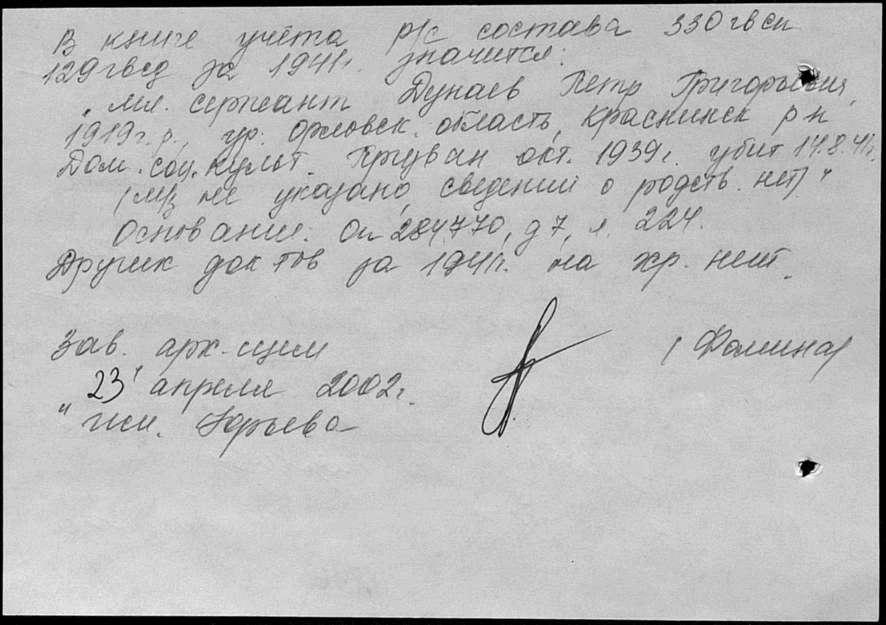 В книге учёта р/с состава 330 гв сп
129 гвсд за 1941г. значится:
„мл. сержант Дунаев Петр Григорьевич,
1919 г.р., ур. Орловск. область, Краснинск р-н
Дом. соц. культ. Призван окт. 1939г. убит 14.8.41г.
(м/з не указано, сведений о родств. нет)"
Основание: Оп 284770, д 7, л. 224.
Других док-тов за 1941г. на хр. нет.
Зав. арх-щем (Фомина)
"23" апреля 2002г.
исп. Юрьева